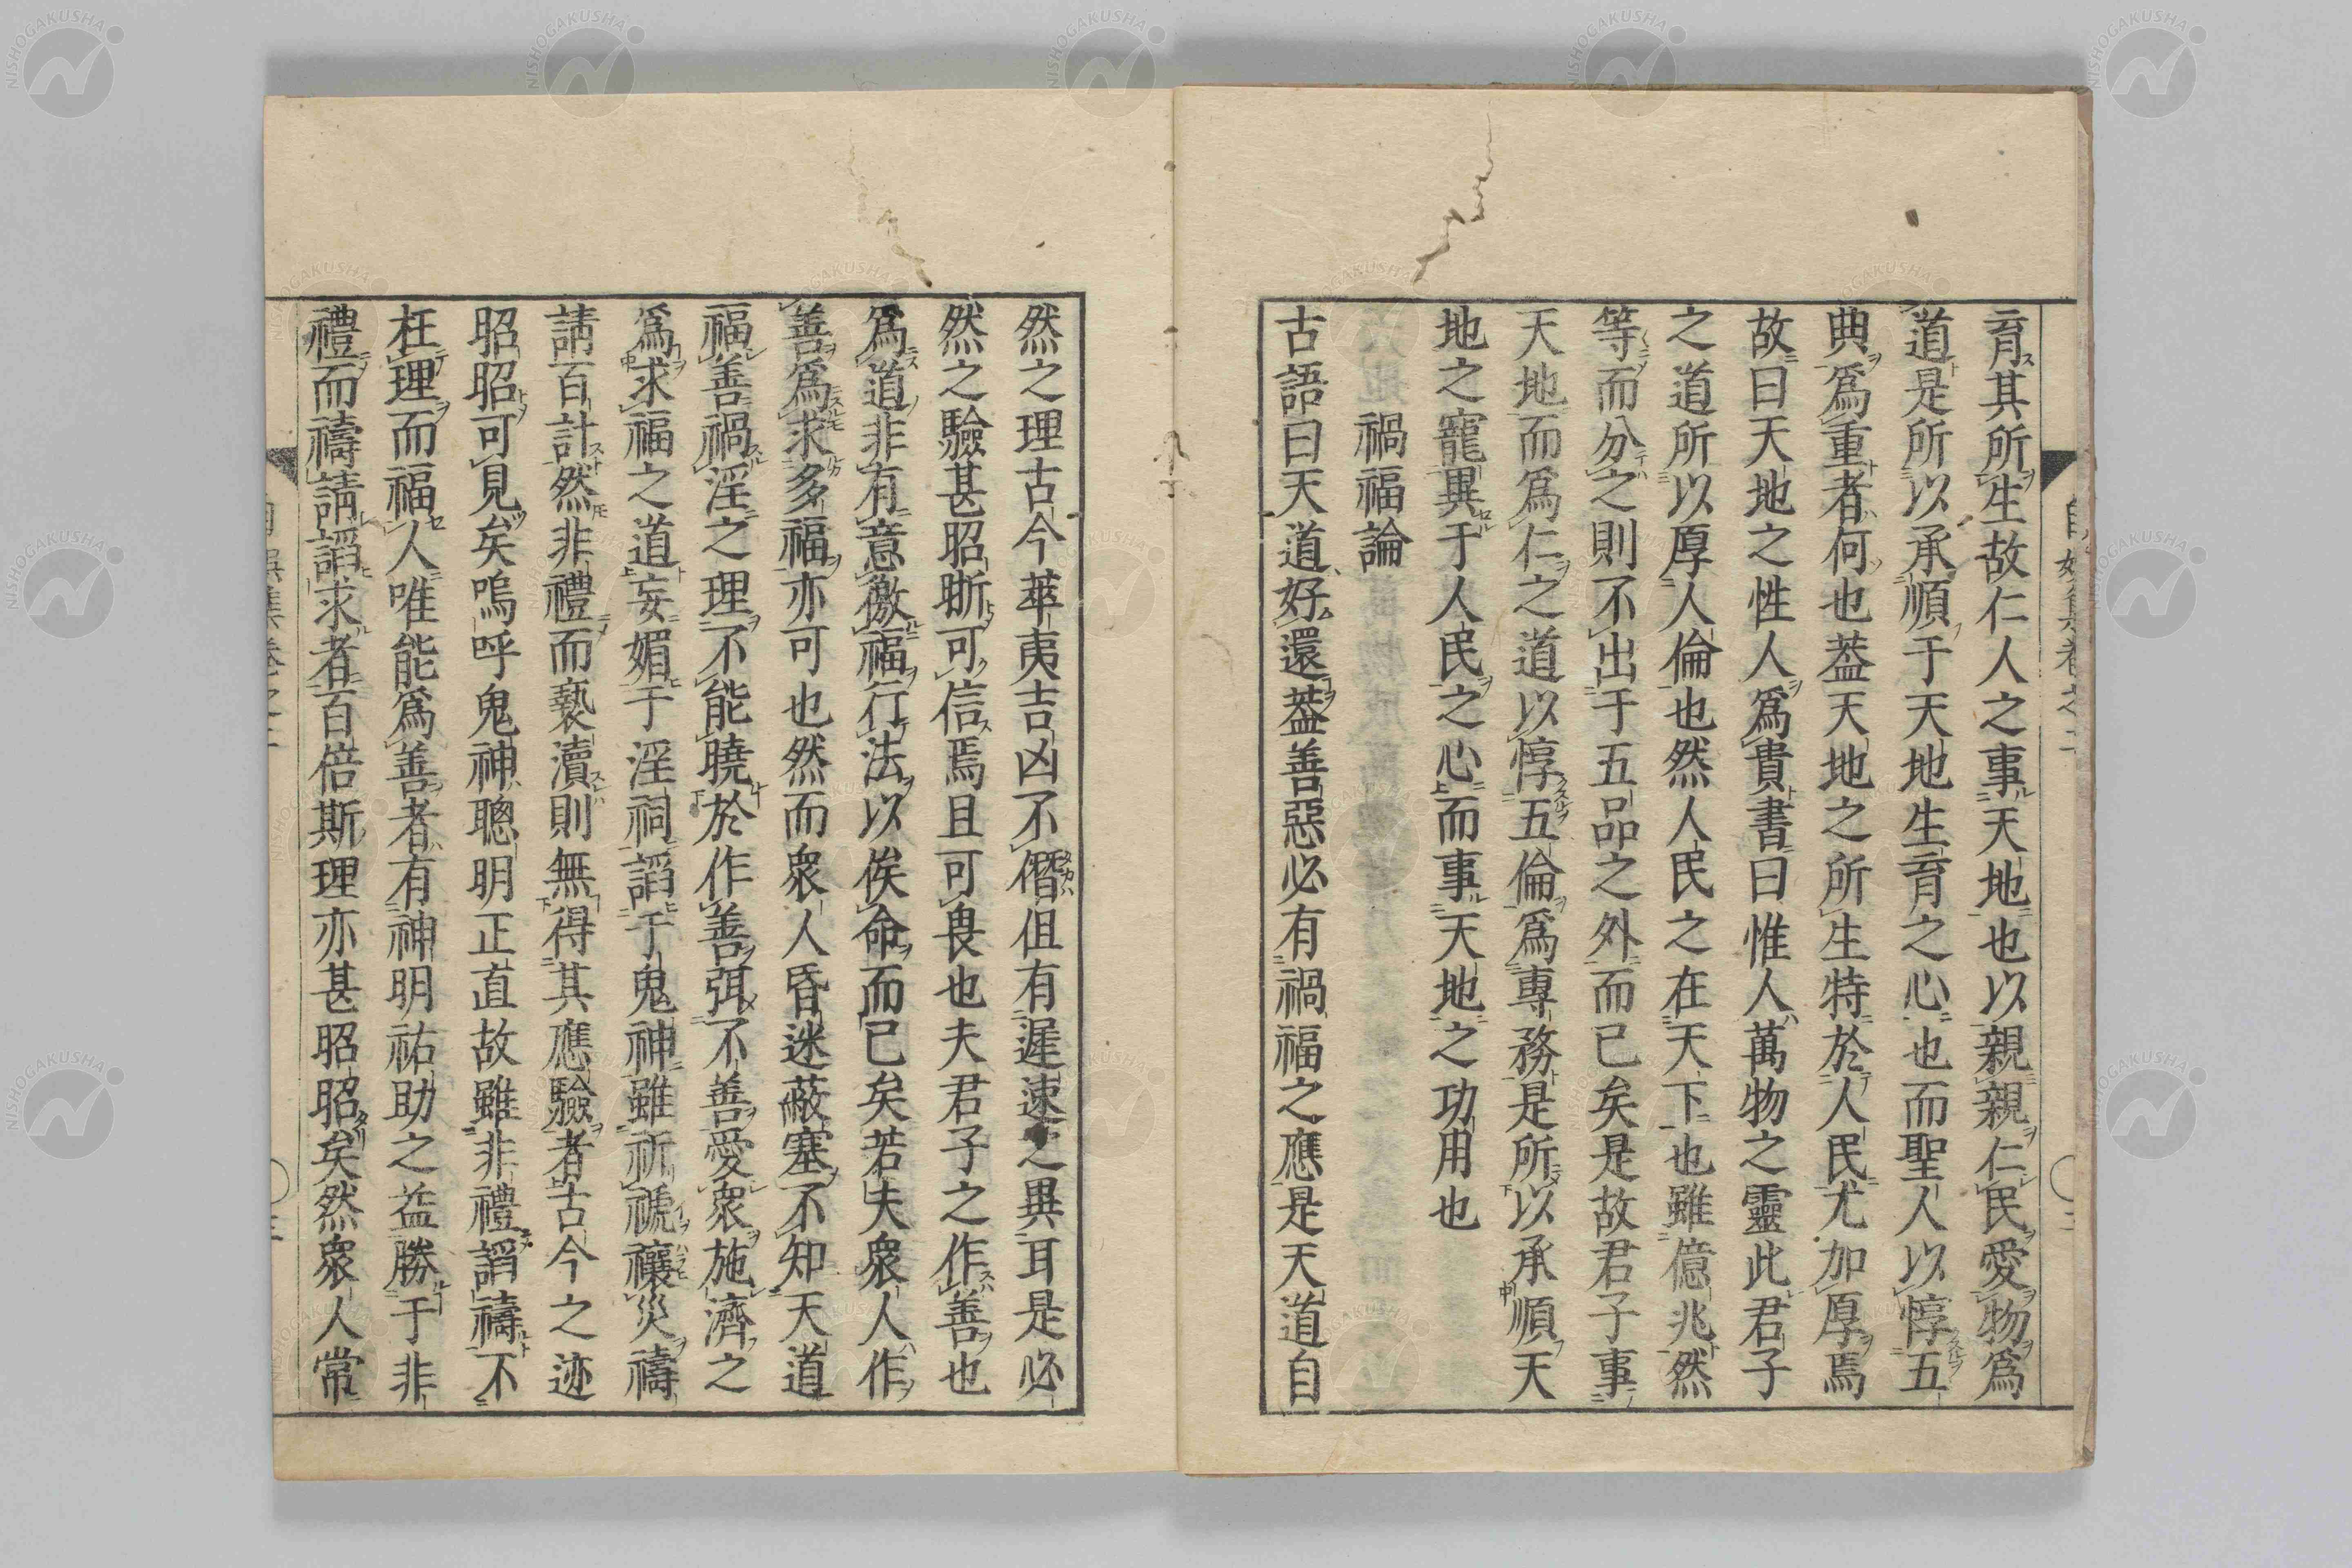 育其所生故仁人之事天地也以親親仁民愛物爲
道是所以承順于天地生育之心也而聖人以惇五
典爲重者何也葢天地之所生特於人民尤加厚焉
故曰天地之性人爲貴書曰惟人萬物之靈此君子
之道所以厚人倫也然人民之在天下也雖億兆然
等而分之則不出于五品之外而已矣是故君子事
天地而爲仁之道以惇五倫爲專務是所以承順天
地之寵異于人民之心而事天地之功用也
禍福論
古語曰天道好還葢善惡必有禍福之應是天道自
然之理古今華夷吉凶不僭但有遲速之異耳是必
然之驗甚昭晰可信焉且可畏也夫君子之作善也
爲道非有意徼福行法以俟命而已矣若夫衆人作
善爲求多福亦可也然而衆人昏迷蔽塞不知天道
福善禍淫之理不能曉於作善弭不善愛衆施濟之
爲求福之道妄媚于淫祠諂于鬼神雖祈禠禳災禱
請百計然非禮而褻瀆則無得其應驗者古今之迹
昭昭可見矣嗚呼鬼神聰明正直故雖非禮諂禱不
枉理而福人唯能爲善者有神明祐助之益勝于非
禮而禱請諂求者百倍斯理亦甚昭昭矣然衆人常
NISHOGAKUSHA